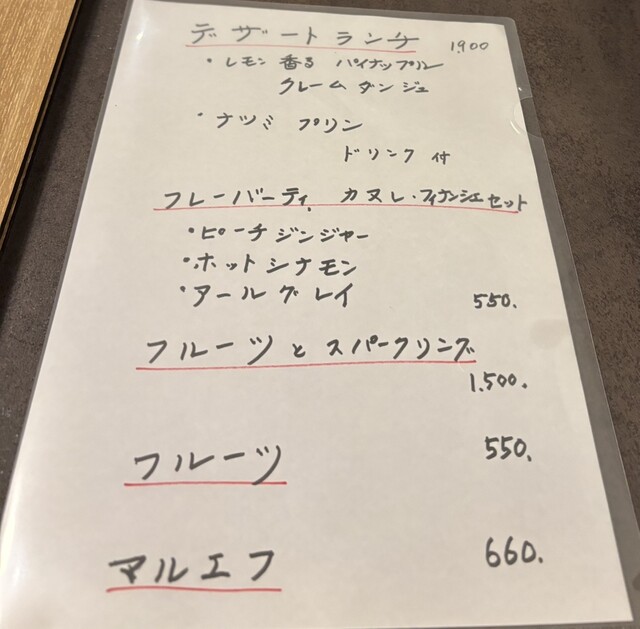 デザートランチ 1,900
・レモン香る パイナップルン
クレームダンジュ
・ナツミ プリン
ドリンク付
フレーバーティ、カヌレ・フィナンシェセット
・ピーチジンジャー
・ホットシナモン
・アールグレイ 550.
フルーツとスパークリング
1,500.
フルーツ 550.
マルエフ 660.